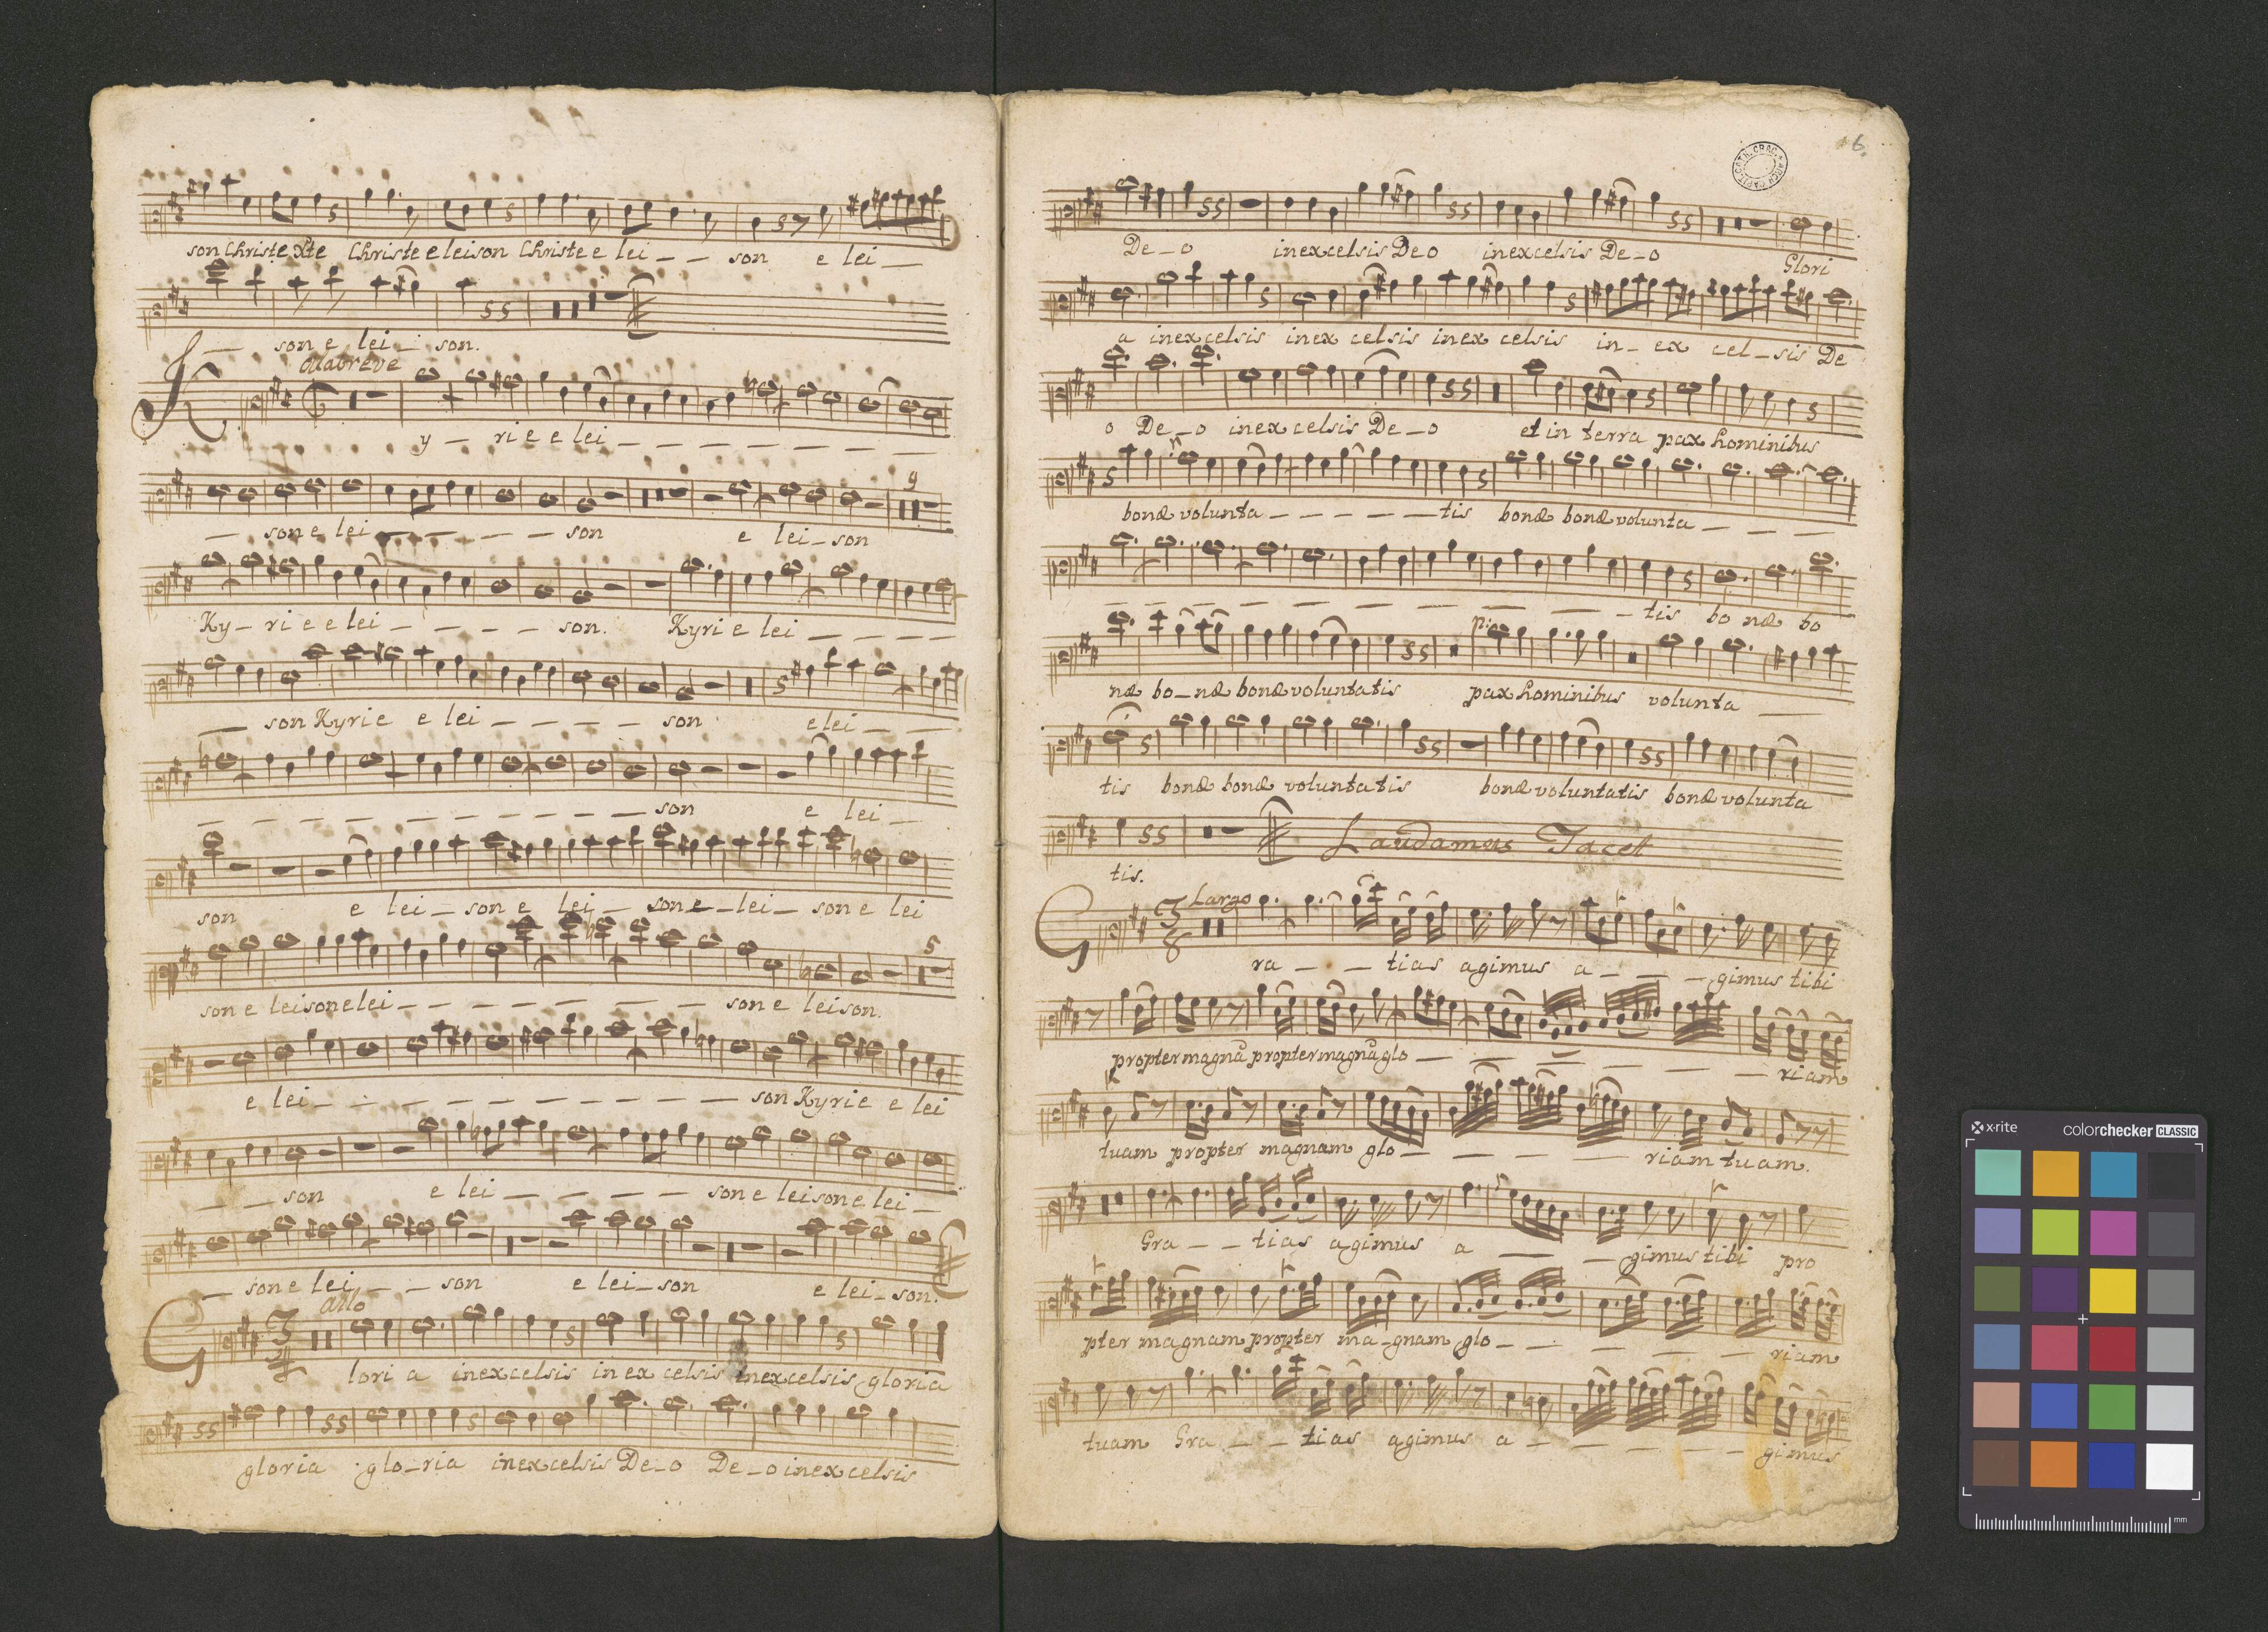 son Christe Xte Christe e leison Christe e lei _ _ son e lei _
_ son e lei _ son.
allabreve
K y _ rie e lei _ _ _ _ _ _ _ _
_ son e lei _ _ _ _ son e lei _ son
9
Ky _ rie e lei _ _ _ _ son. Kyrie lei _ _ _ _
_ son Kyrie e lei _ _ _ _ son e lei _ _
_ _ _ _ _ _ _ _ _ _ son e lei _
son e lei _ son e lei _ son e _ lei _ son e lei
son e leison e lei _ _ _ _ _ _ _ son e leison.
5
e lei _ _ _ _ _ _ _ _ _ _ son Kyrie e lei
_ _ son e lei _ _ _ _ _ son e leison e lei _
_ son e lei _ _ son e lei _ son e lei _ son.
allo
G loria in excelsis in ex celsis in excelsis gloria
gloria glo _ ria in excelsis De _ o De _ o in excelsis
6.
ARCH. CAPIT. CATH. CRAC.
De _ o in excelsis Deo in excelsis De _ o Glori
a in excelsis in ex celsis in ex celsis in _ ex cel _ sis De
o De _ o in ex celsis De _ o et in terra pax hominibus
bonæ volunta _ _ _ _ _ tis bonæ bonæ volunta _ _ _
_ _ _ _ _ _ _ _ _ tis bo næ bo
p:
næ bo _ næ bonæ voluntatis pax hominibus volunta _
tis bonæ bonæ voluntatis bonæ voluntatis bonæ volunta
Laudamus Tacet
tis.
Largo
G ra _ _ _ tias agimus a _ _ _ gimus tibi
propter magnũ propter magnũ glo _ _ _ _ _ _ riam
tuam propter magnam glo _ _ _ _ _ riam tuam.
Gra _ _ tias agimus a _ _ _ gimus tibi pro
pter magnam propter ma _ gnam glo _ _ _ _ _ _ riam
tuam Gra _ _ _ tias agimus a _ _ _ _ _ _ gimus
x-rite
colorchecker CLASSIC
mm